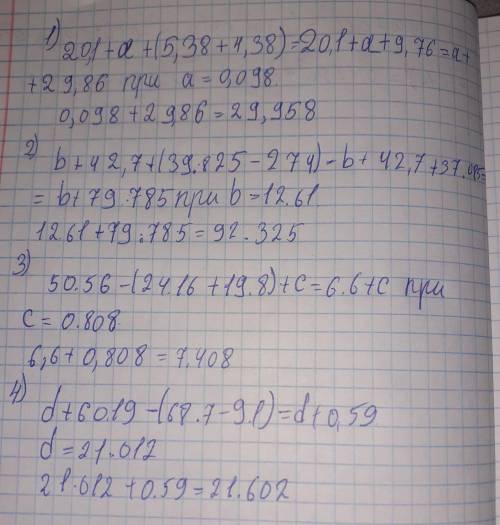 1) 20,1 + a + (5,38 + 4,38) = 20,1 + a + 9,76 = a +
+ 29,86 при a = 0,098
0,098 + 29,86 = 29,958
2) b + 42,7 + (39.825 - 274) - b + 42,7 + 37.085 =
= b + 79.785 при b = 12.61
1261 + 79.785 = 92.325
3) 50.56 - (24.16 + 19.8) + c = 6.6 + c при
c = 0.808
6,6 + 0,808 = 7.408
4) d + 60.19 - (68.7 - 9.1) = d + 0,59
d = 21.012
21.012 + 0.59 = 21.602